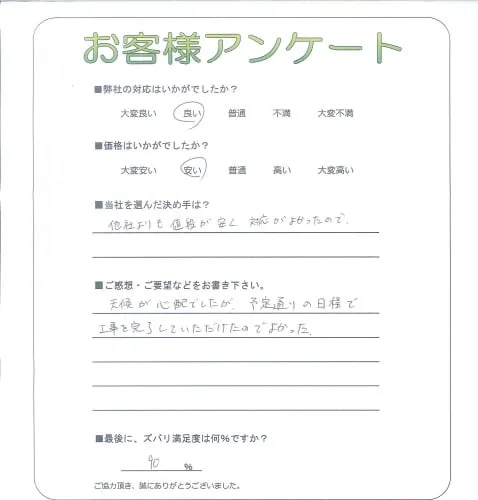 お客様アンケート
■弊社の対応はいかがでしたか?
大変良い 良い 普通 不満 大変不満
■価格はいかがでしたか?
大変安い 安い 普通 高い 大変高い
■当社を選んだ決め手は?
他社よりも値段が安く対応がよかったので.
■ご感想・ご要望などをお書き下さい。
天候が心配でしたが、予定通りの日程で
工事を完了していただけたのでよかった.
■最後に、ズバリ満足度は何%ですか?
90 %
ご協力頂き、誠にありがとうございました。